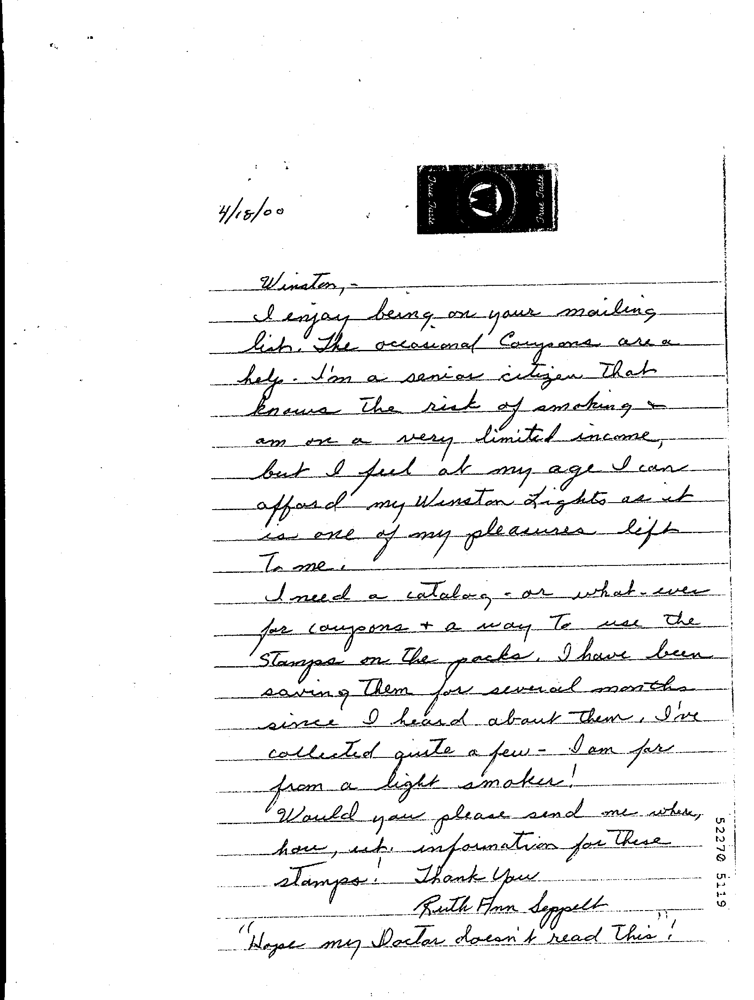 4/18/00
True Taste
W
True Taste
Winston, -
I enjoy being on your mailing
list. The occasional Coupons are a
help. I'm a senior citizen that
knows the risk of smoking &
am on a very limited income,
but I feel at my age I can
afford my Winston Lights as it
is one of my pleasures left
to me.
I need a catalog - or what-ever
for coupons + a way to use the
stamps on the packs. I have been
saving them for several months
since I heard about them. I've
collected quite a few - I am far
from a light smoker!
Would you please send me where,
how, ect. information for these
stamps! Thank you
Ruth Ann Seppelt
"Hope my Doctor doesn't read this"!
52270 5119